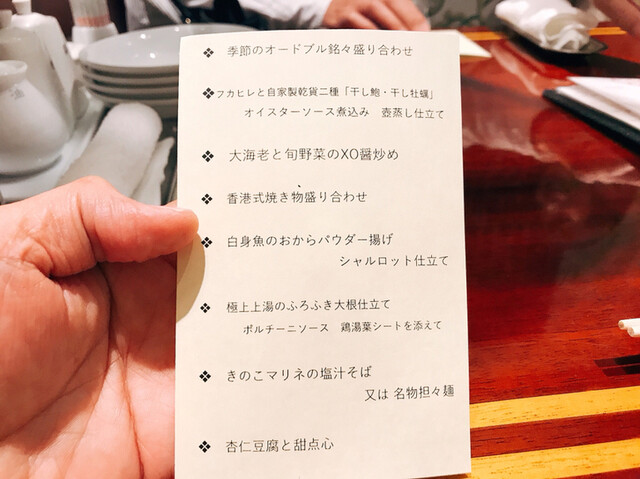 ❖ 季節のオードブル銘々盛り合わせ
❖ フカヒレと自家製乾貨二種「干し鮑・干し牡蠣」
オイスターソース煮込み 壺蒸し仕立て
❖ 大海老と旬野菜のXO醤炒め
❖ 香港式焼き物盛り合わせ
❖ 白身魚のおからパウダー揚げ
シャルロット仕立て
❖ 極上上湯のふろふき大根仕立て
ポルチーニソース 鶏湯葉シートを添えて
❖ きのこマリネの塩汁そば
又は 名物担々麺
❖ 杏仁豆腐と甜点心